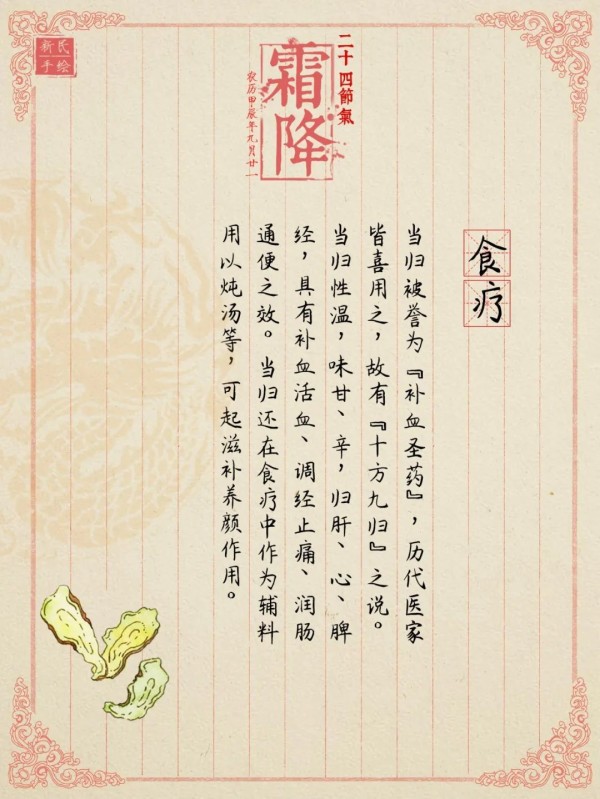 新民
手绘
二十四節氣
霜降
农历甲辰年九月廿一
食疗
当归被誉为『补血圣药』，历代医家
皆喜用之，故有『十方九归』之说。
当归性温，味甘、辛，归肝、心、脾
经，具有补血活血、调经止痛、润肠
通便之效。当归还在食疗中作为辅料
用以炖汤等，可起滋补养颜作用。